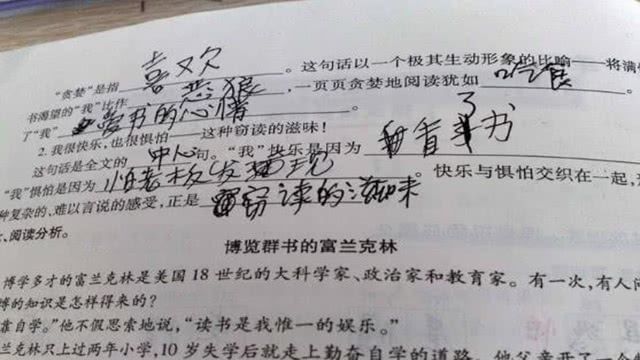 "贪婪"是指喜欢。这句话以一个极其生动形象的比喻——将满
书渴望的"我"比作恶狼,一页页贪婪地阅读犹如吃食
了"我"爱书的心情。
2. 我很快乐,也很惧怕——这种窃读的滋味!
这句话是全文的中心句。"我"快乐是因为看了书
"我"惧怕是因为怕老板发现。快乐与惧怕交织在一起,
种复杂的、难以言说的感受,正是窃读的滋味
、阅读分析。
博览群书的富兰克林
博学多才的富兰克林是美国 18 世纪的大科学家、政治家和教育家。有一次,有人问
博的知识是怎样得来的?
靠自学。"他不假思索地说,"读书是我惟一的娱乐。"
兰克林只上过两年小学,10 岁失学后就走上勤奋自学的道路。他父亲开了一个